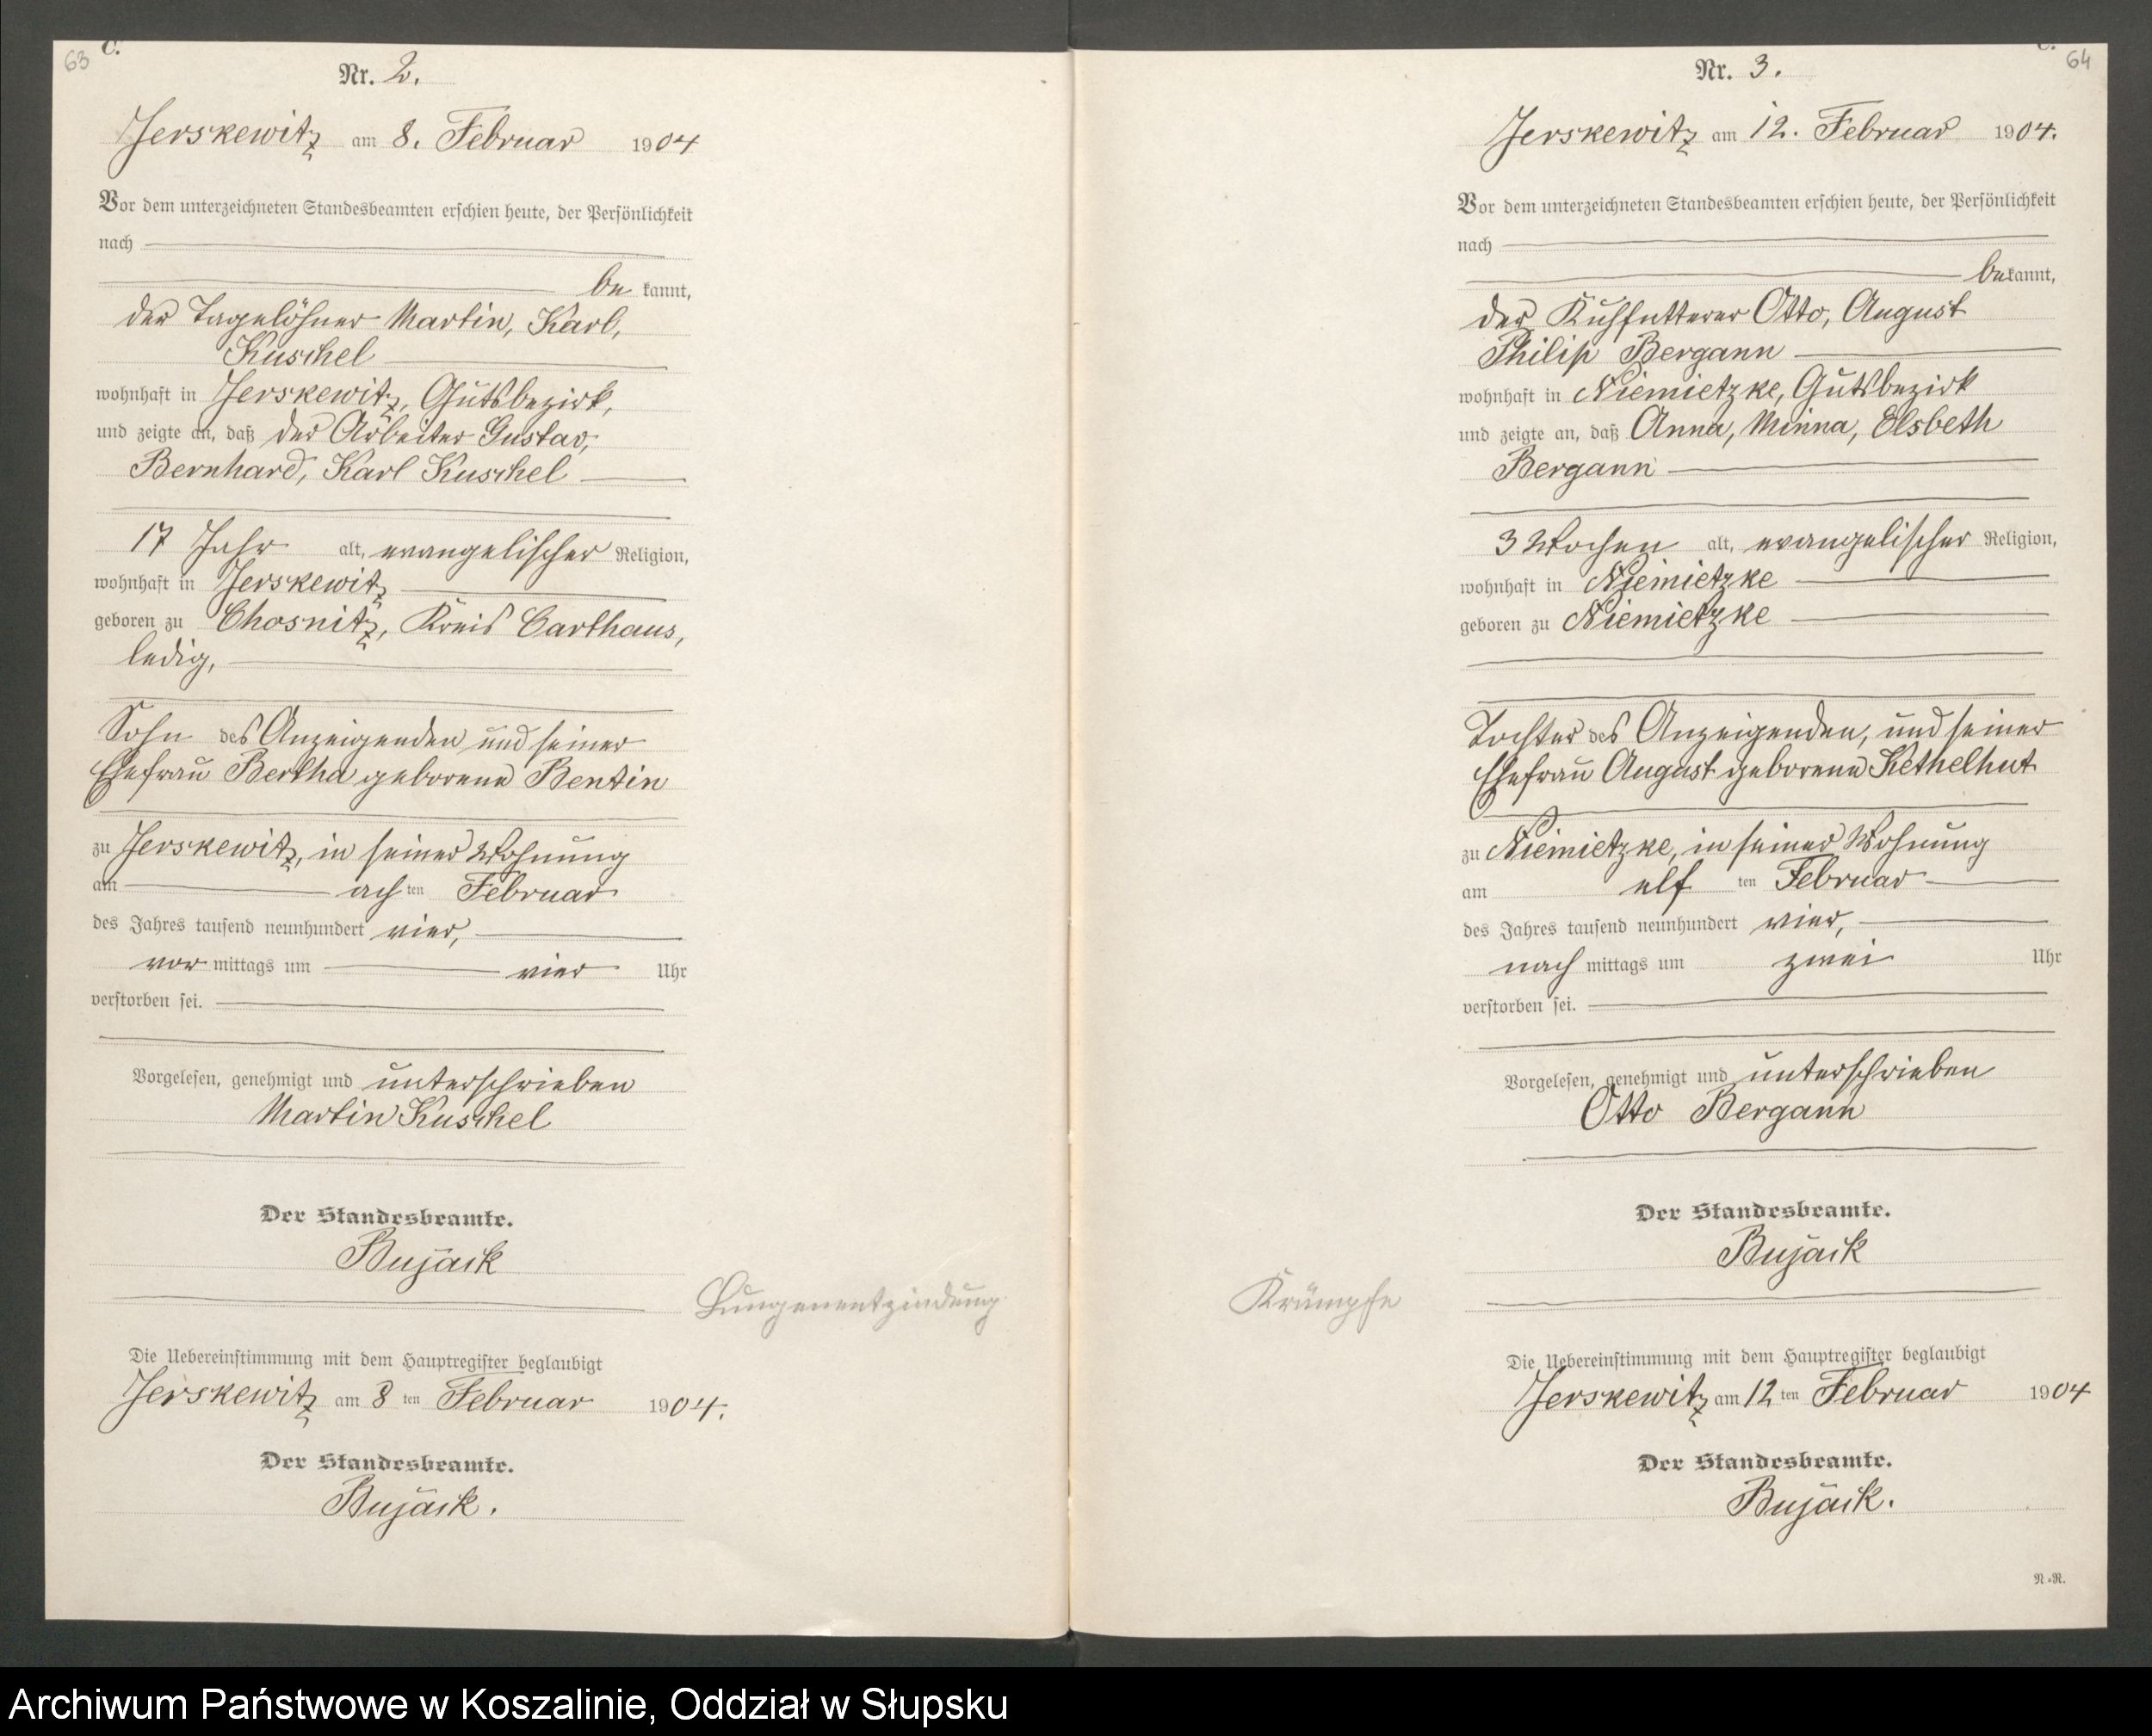 63
C.
Nr. 2.
Jerskewitz am 8. Februar 1904
Vor dem unterzeichneten Standesbeamten erschien heute, der Persönlichkeit
nach
be kannt,
der Tagelöhner Martin, Karl,
Kuschel
wohnhaft in Jerskewitz, Gutsbezirk,
und zeigte an, daß der Arbeiter Gustav,
Bernhard, Karl Kuschel
17 Jahr alt, evangelischer Religion,
wohnhaft in Jerskewitz
geboren zu Chosnitz, Kreis Carthaus,
ledig,
Sohn des Anzeigenden und seiner
Ehefrau Bertha geborene Bentin
zu Jerskewitz, in seiner Wohnung
am ach ten Februar
des Jahres tausend neunhundert vier,
vor mittags um vier Uhr
verstorben sei.
Vorgelesen, genehmigt und unterschrieben
Martin Kuschel
Der Standesbeamte.
Bujack
Lungenentzindung
Die Uebereinstimmung mit dem Hauptregister beglaubigt
Jerskewitz am 8 ten Februar 1904.
Der Standesbeamte.
Bujack.
C.
64
Nr. 3.
Jerskewitz am 12. Februar 1904.
Vor dem unterzeichneten Standesbeamten erschien heute, der Persönlichkeit
nach
bekannt,
der Kuhfutterer Otto, August
Philip Bergann
wohnhaft in Niemietzke, Gutsbezirk
und zeigte an, daß Anna, Minna, Elsbeth
Bergann
3 Wochen alt, evangelischer Religion,
wohnhaft in Niemietzke
geboren zu Niemietzke
Tochter des Anzeigenden, und seiner
Ehefrau August geborene Kethelhut
zu Niemietzke, in seiner Wohnung
am elf ten Februar
des Jahres tausend neunhundert vier,
nach mittags um zwei Uhr
verstorben sei.
Vorgelesen, genehmigt und unterschrieben
Otto Bergann
Der Standesbeamte.
Bujack
Krämpfe
Die Uebereinstimmung mit dem Hauptregister beglaubigt
Jerskewitz am 12 ten Februar 1904
Der Standesbeamte.
Bujack.
N.-R.
Archiwum Państwowe w Koszalinie, Oddział w Słupsku